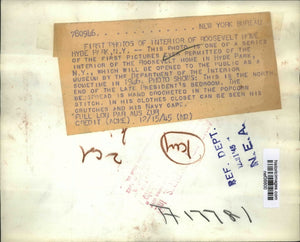 780946 NEW YORK BUREAU
FIRST PHOTOS OF INTERIOR OF ROOSEVELT HOME
HYDE PARK, N.Y. -- THIS PHOTO IS ONE OF A SERIES
OF THE FIRST PICTURES EVER PERMITTED OF THE
INTERIOR OF THE ROOSEVELT HOME IN HYDE PARK,
N.Y., WHICH WILL BE OPENED TO THE PUBLIC AS A
MUSEUM BY THE DEPARTMENT OF THE INTERIOR
SOMETIME IN 1946. PHOTO SHOWS: THIS IS THE NORTH
END OF THE LATE PRESIDENT'S BEDROOM. THE
BEDSPREAD IS HAND CROCHETED IN THE POPCORN
STITCH. IN HIS CLOTHES CLOSET CAN BE SEEN HIS
SHOES AND HIS NAVY CAPE.
CREDIT (ACME) 12/15/45 (MD)
2 col
REF. DEPT.
N.E.A.
A17781